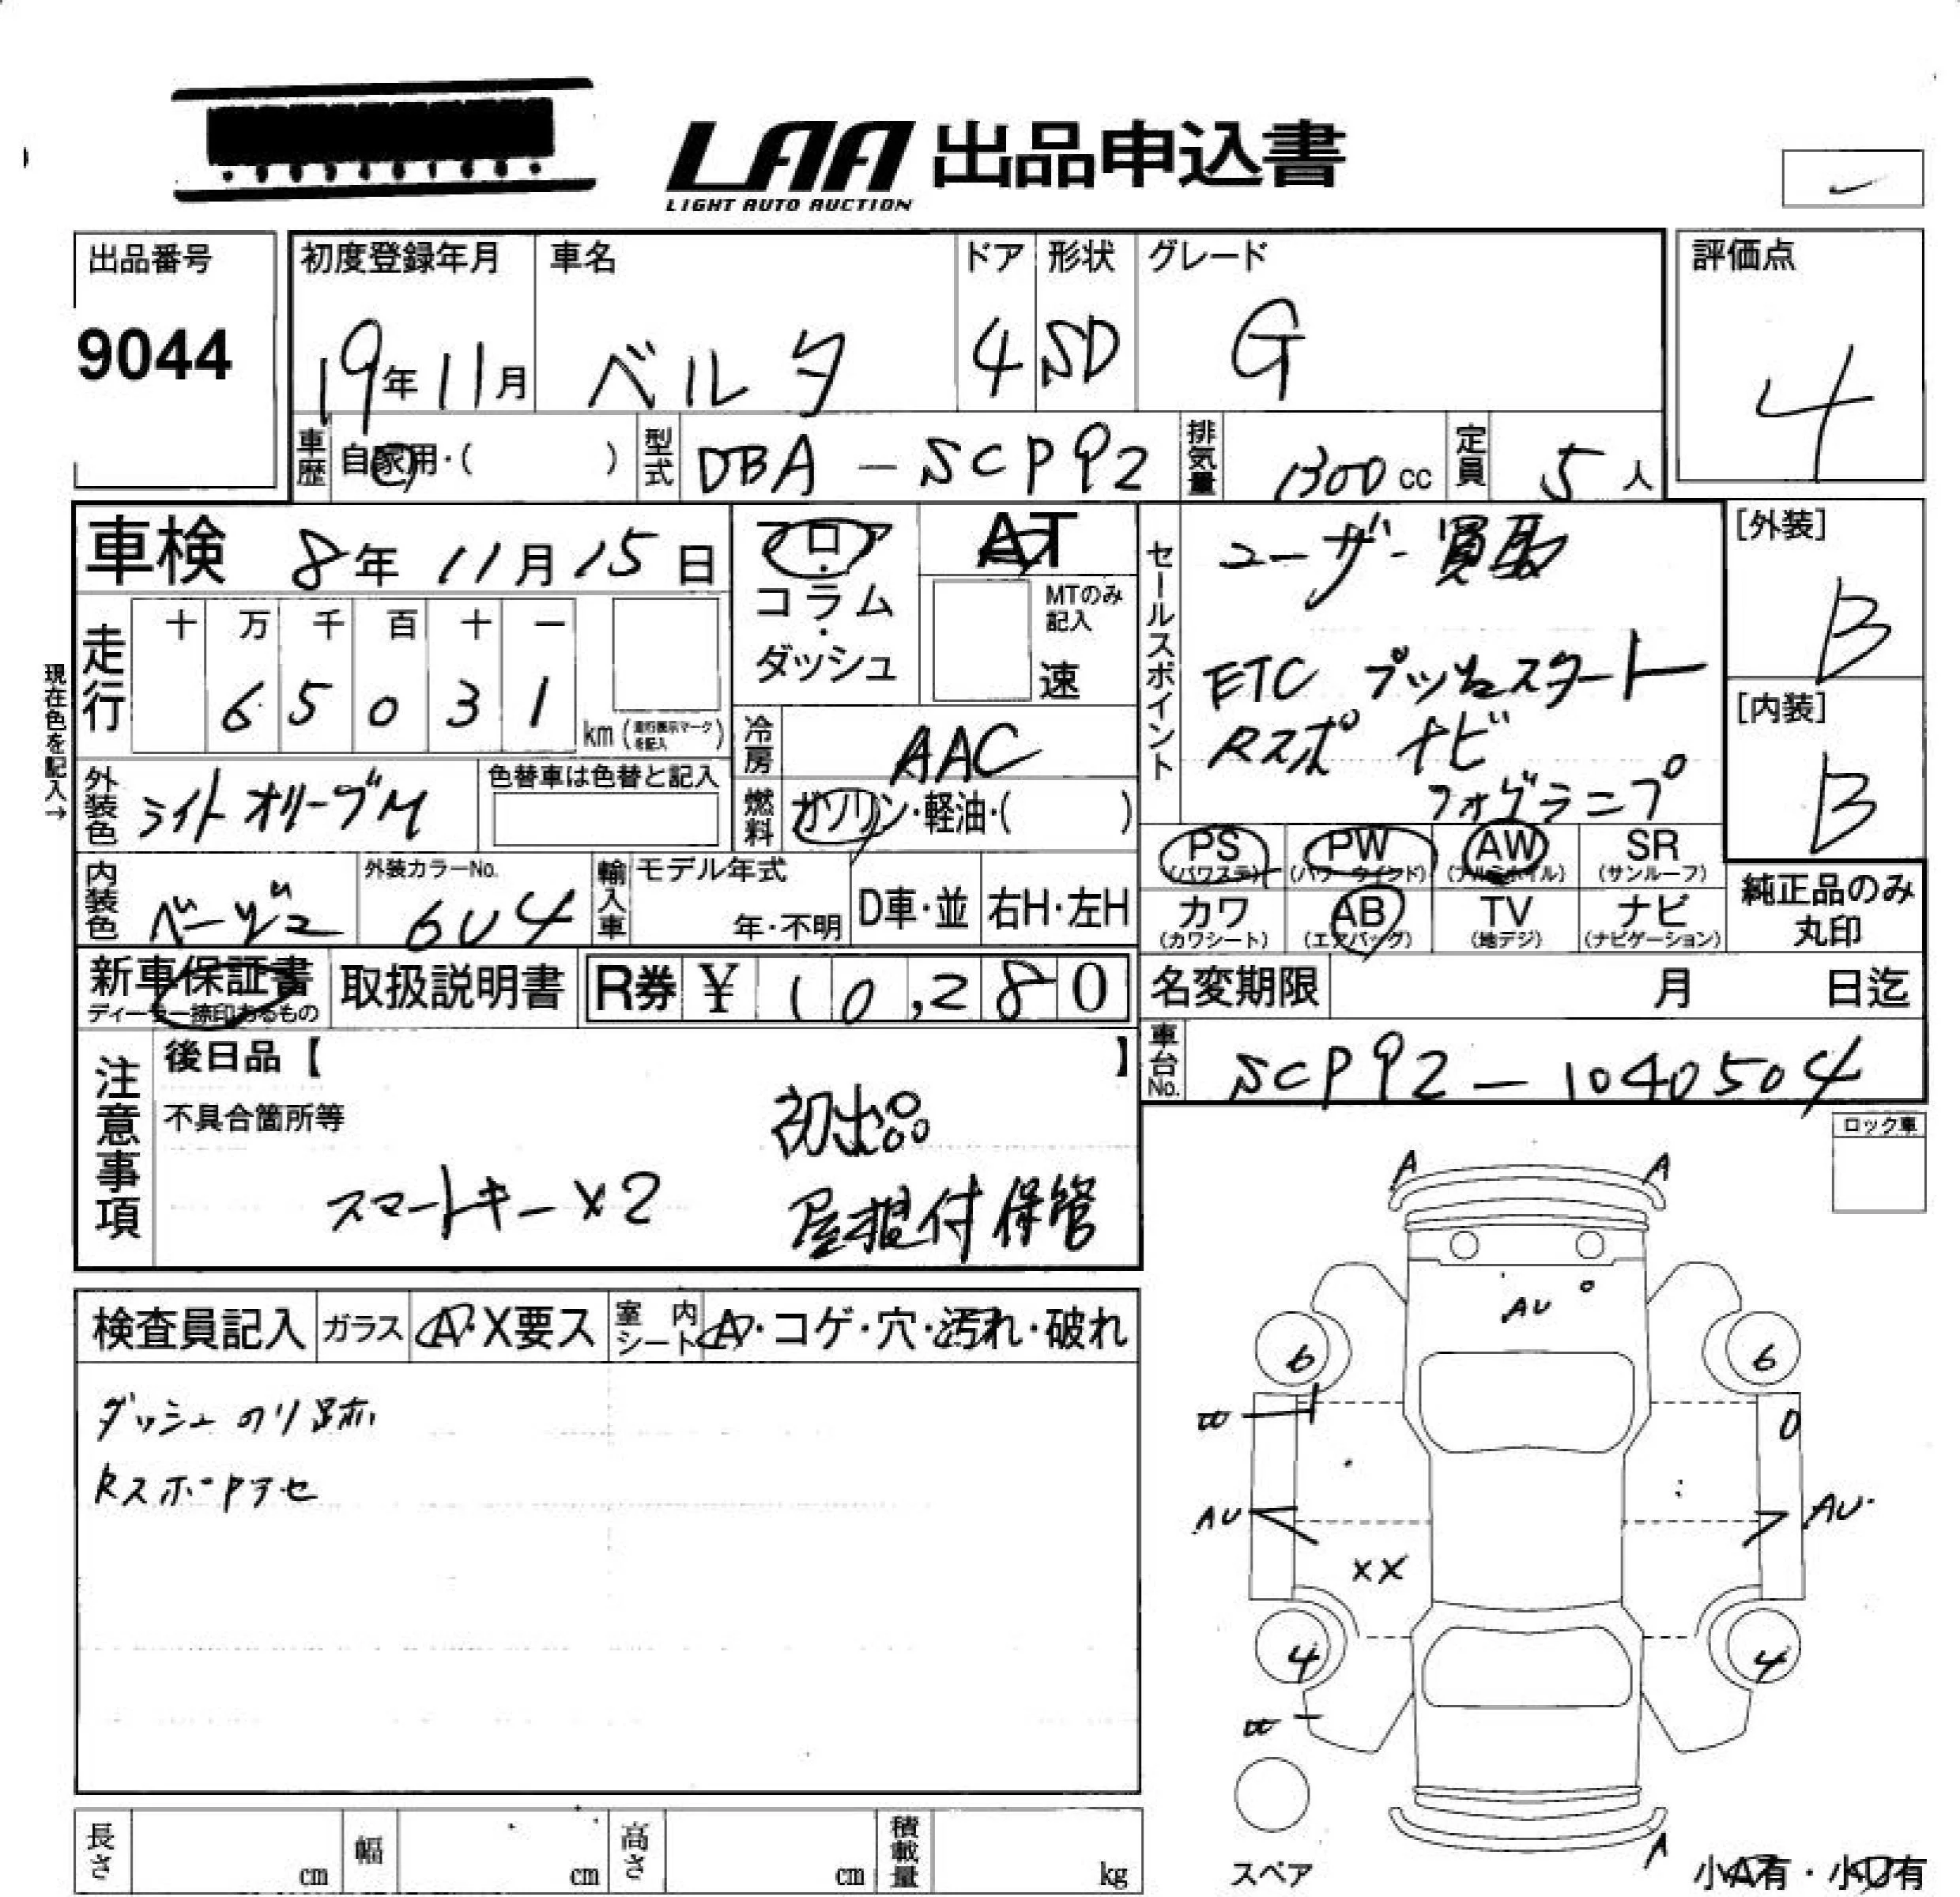 LAA 出品申込書
LIGHT AUTO AUCTION
出品番号
9044
初度登録年月
19年11月
車名
ベルタ
ドア
4
形状
SD
グレード
G
評価点
4
車歴
自家用・( )
型式
DBA-SCP92
排気量
1300cc
定員
5人
車検
8年11月15日
フロア・コラム・ダッシュ
AT
MTのみ記入
速
現在色を記入→
走行
十 万 千 百 十 一
6 5 0 3 1
km(走行表示マークを記入)
冷房
AAC
燃料
ガソリン・軽油・( )
外装色
ライトオリーブM
色替車は色替と記入
内装色
ベージュ
外装カラーNo.
6U4
輸入車
モデル年式
年・不明
D車・並
右H・左H
セールスポイント
ユーザー買取
ETC プッシュスタート
Rスポ ナビ
フォグランプ
[外装]
B
[内装]
B
PS (パワステ)
PW (パワーウインド)
AW (アルミホイル)
SR (サンルーフ)
カワ (カワシート)
AB (エアバッグ)
TV (地デジ)
ナビ (ナビゲーション)
純正品のみ丸印
新車保証書
ディーラー捺印あるもの
取扱説明書
R券 ¥ 10,280
名変期限 月 日迄
車台No.
SCP92-1040504
注意事項
後日品【 】
不具合箇所等
初出品
スマートキー×2
屋根付保管
ロック車
検査員記入
ガラス
A・X要ス
室内シート
A・コゲ・穴・汚れ・破れ
ダッシュのり跡
A A
AU
6 6
AU AU
XX
4 4
A
スペア
小A有・小U有
長さ cm
幅 cm
高さ cm
積載量 kg